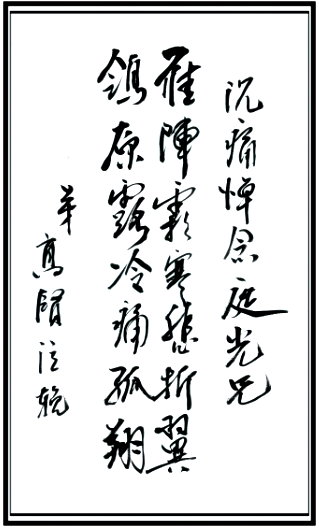 沉痛悼念庭光兄
雁陣霜寒悲折翼
鴒原露冷痛孤翔
弟高賢泣輓